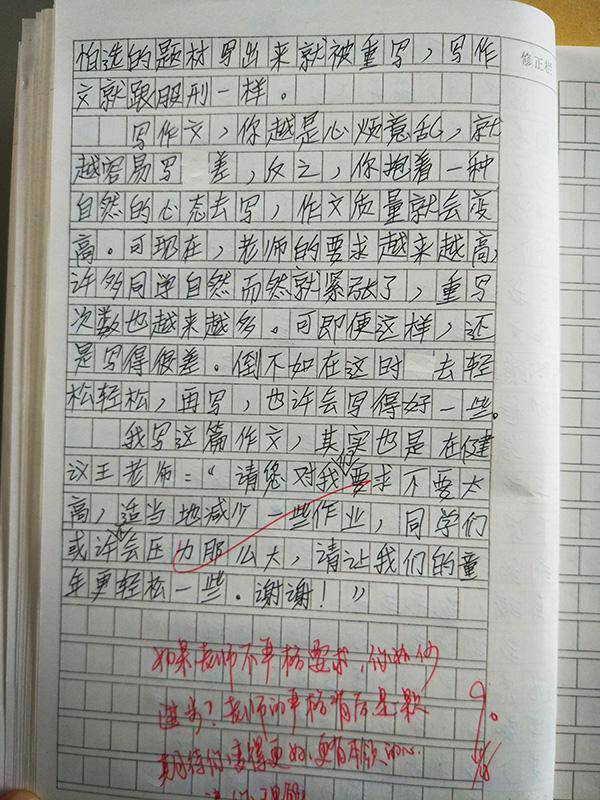 怕选的题材写出来就被重写，写作
文就跟服刑一样。
写作文，你越是心烦意乱，就
越容易写 差，反之，你抱着一种
自然的心态去写，作文质量就会变
高。可现在，老师的要求越来越高，
许多同学自然而然就紧张了，重写
次数也越来越多。可即便这样，还
是写得很差。倒不如在这时 去轻
松轻松，再写，也许会写得好一些。
我写这篇作文，其实也是在健
议王老师："请您对我要求不要太
高，适当地减少一些作业，同学们
或许会压力那么大，请让我们的童
年更轻松一些。谢谢！"
如果老师不严格要求，你们
进步？老师的严格背后是一颗
期待你变得更好、更有本领的心
修正栏